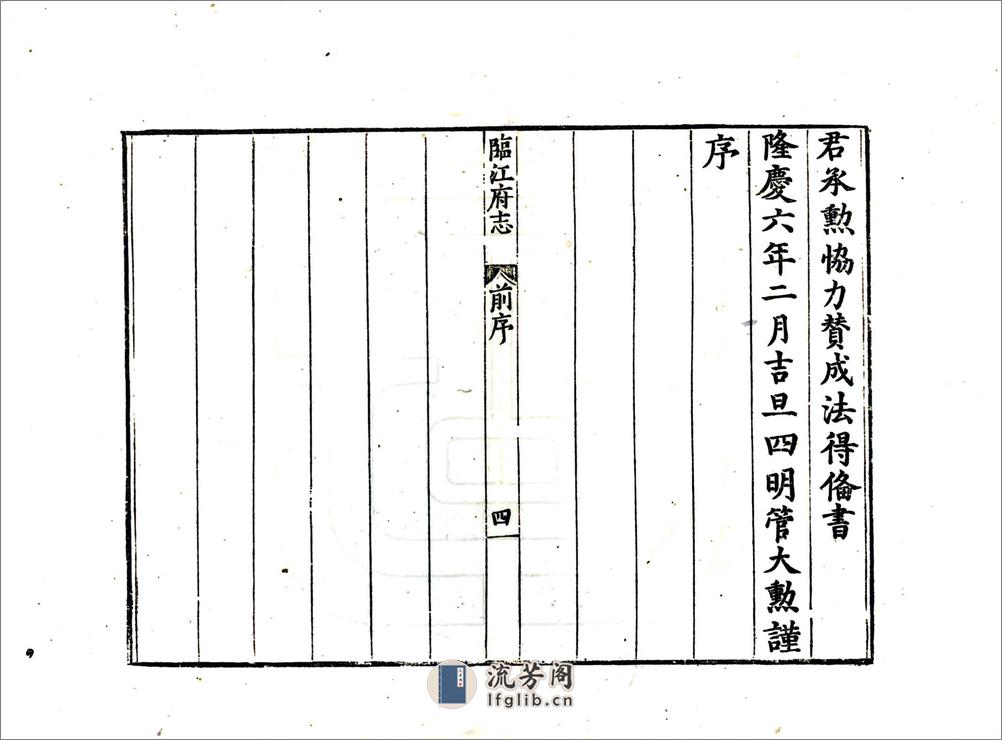 君承勲恊力賛成法得俻書
隆慶六年二月吉旦四明管大勲謹
序
臨江府志
前序
四
流芳阁
lfglib.cn